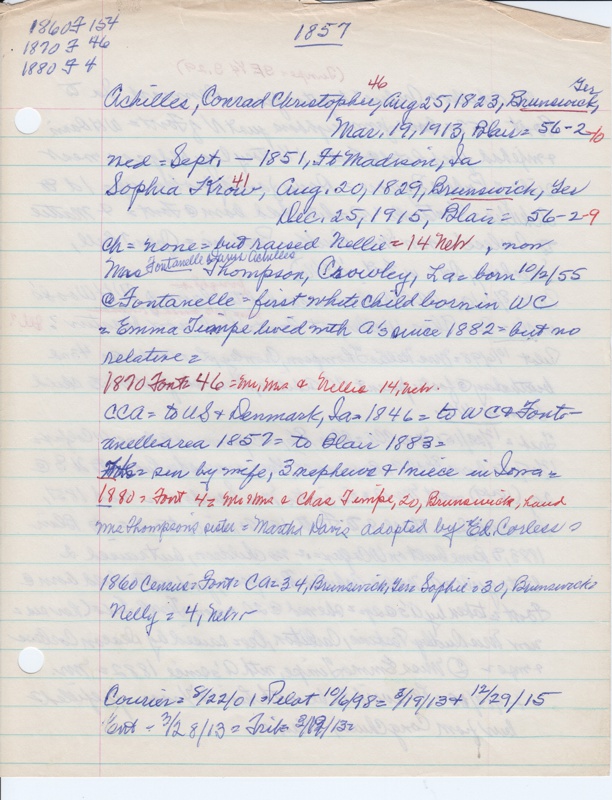 1860 F 154
1870 F 46
1880 F 4
1857
Achilles, Conrad Christopher, 46 Aug 25, 1823, Brunswick, Ger
Mar. 19, 1913, Blair = 56-2-10
med = Sept. — 1851, Ft Madison, Ia
Sophia Krow, 41 Aug. 20, 1829, Brunswick, Ger
Dec. 25, 1915, Blair = 56-2-9
ch = none = but raised Nellie = 14 Nebr , now
Mrs Fontanelle Achilles Thompson, Crowley, La = born 10/2/55
@ Fontanelle = first white child born in WC
= Emma Timpe lived with A's since 1882 = but no
relative =
1870 Font = 46 = Mr, Mrs & Nellie 14, Nebr.
CCA = to US & Denmark, Ia = 1846 = to WC & Font-
anelle area 1857 = to Blair 1883 =
= sur by wife, 3 nephews & 1 niece in Iowa =
1880 = Font 4 = Mr & Mrs & Chas Timpe, 20, Brunswick, hand
Mrs Thompson's sister = Martha Davis adopted by Ed. Corless =
1860 Census = Font = CA = 34, Brunswick, Ger = Sophie = 30, Brunswick =
Nelly = 4, Nebr
Courier = 8/22/01 = Pilot 10/6/98 = 3/19/13 + 12/29/15
Ent - 3/28/13 = Trib =